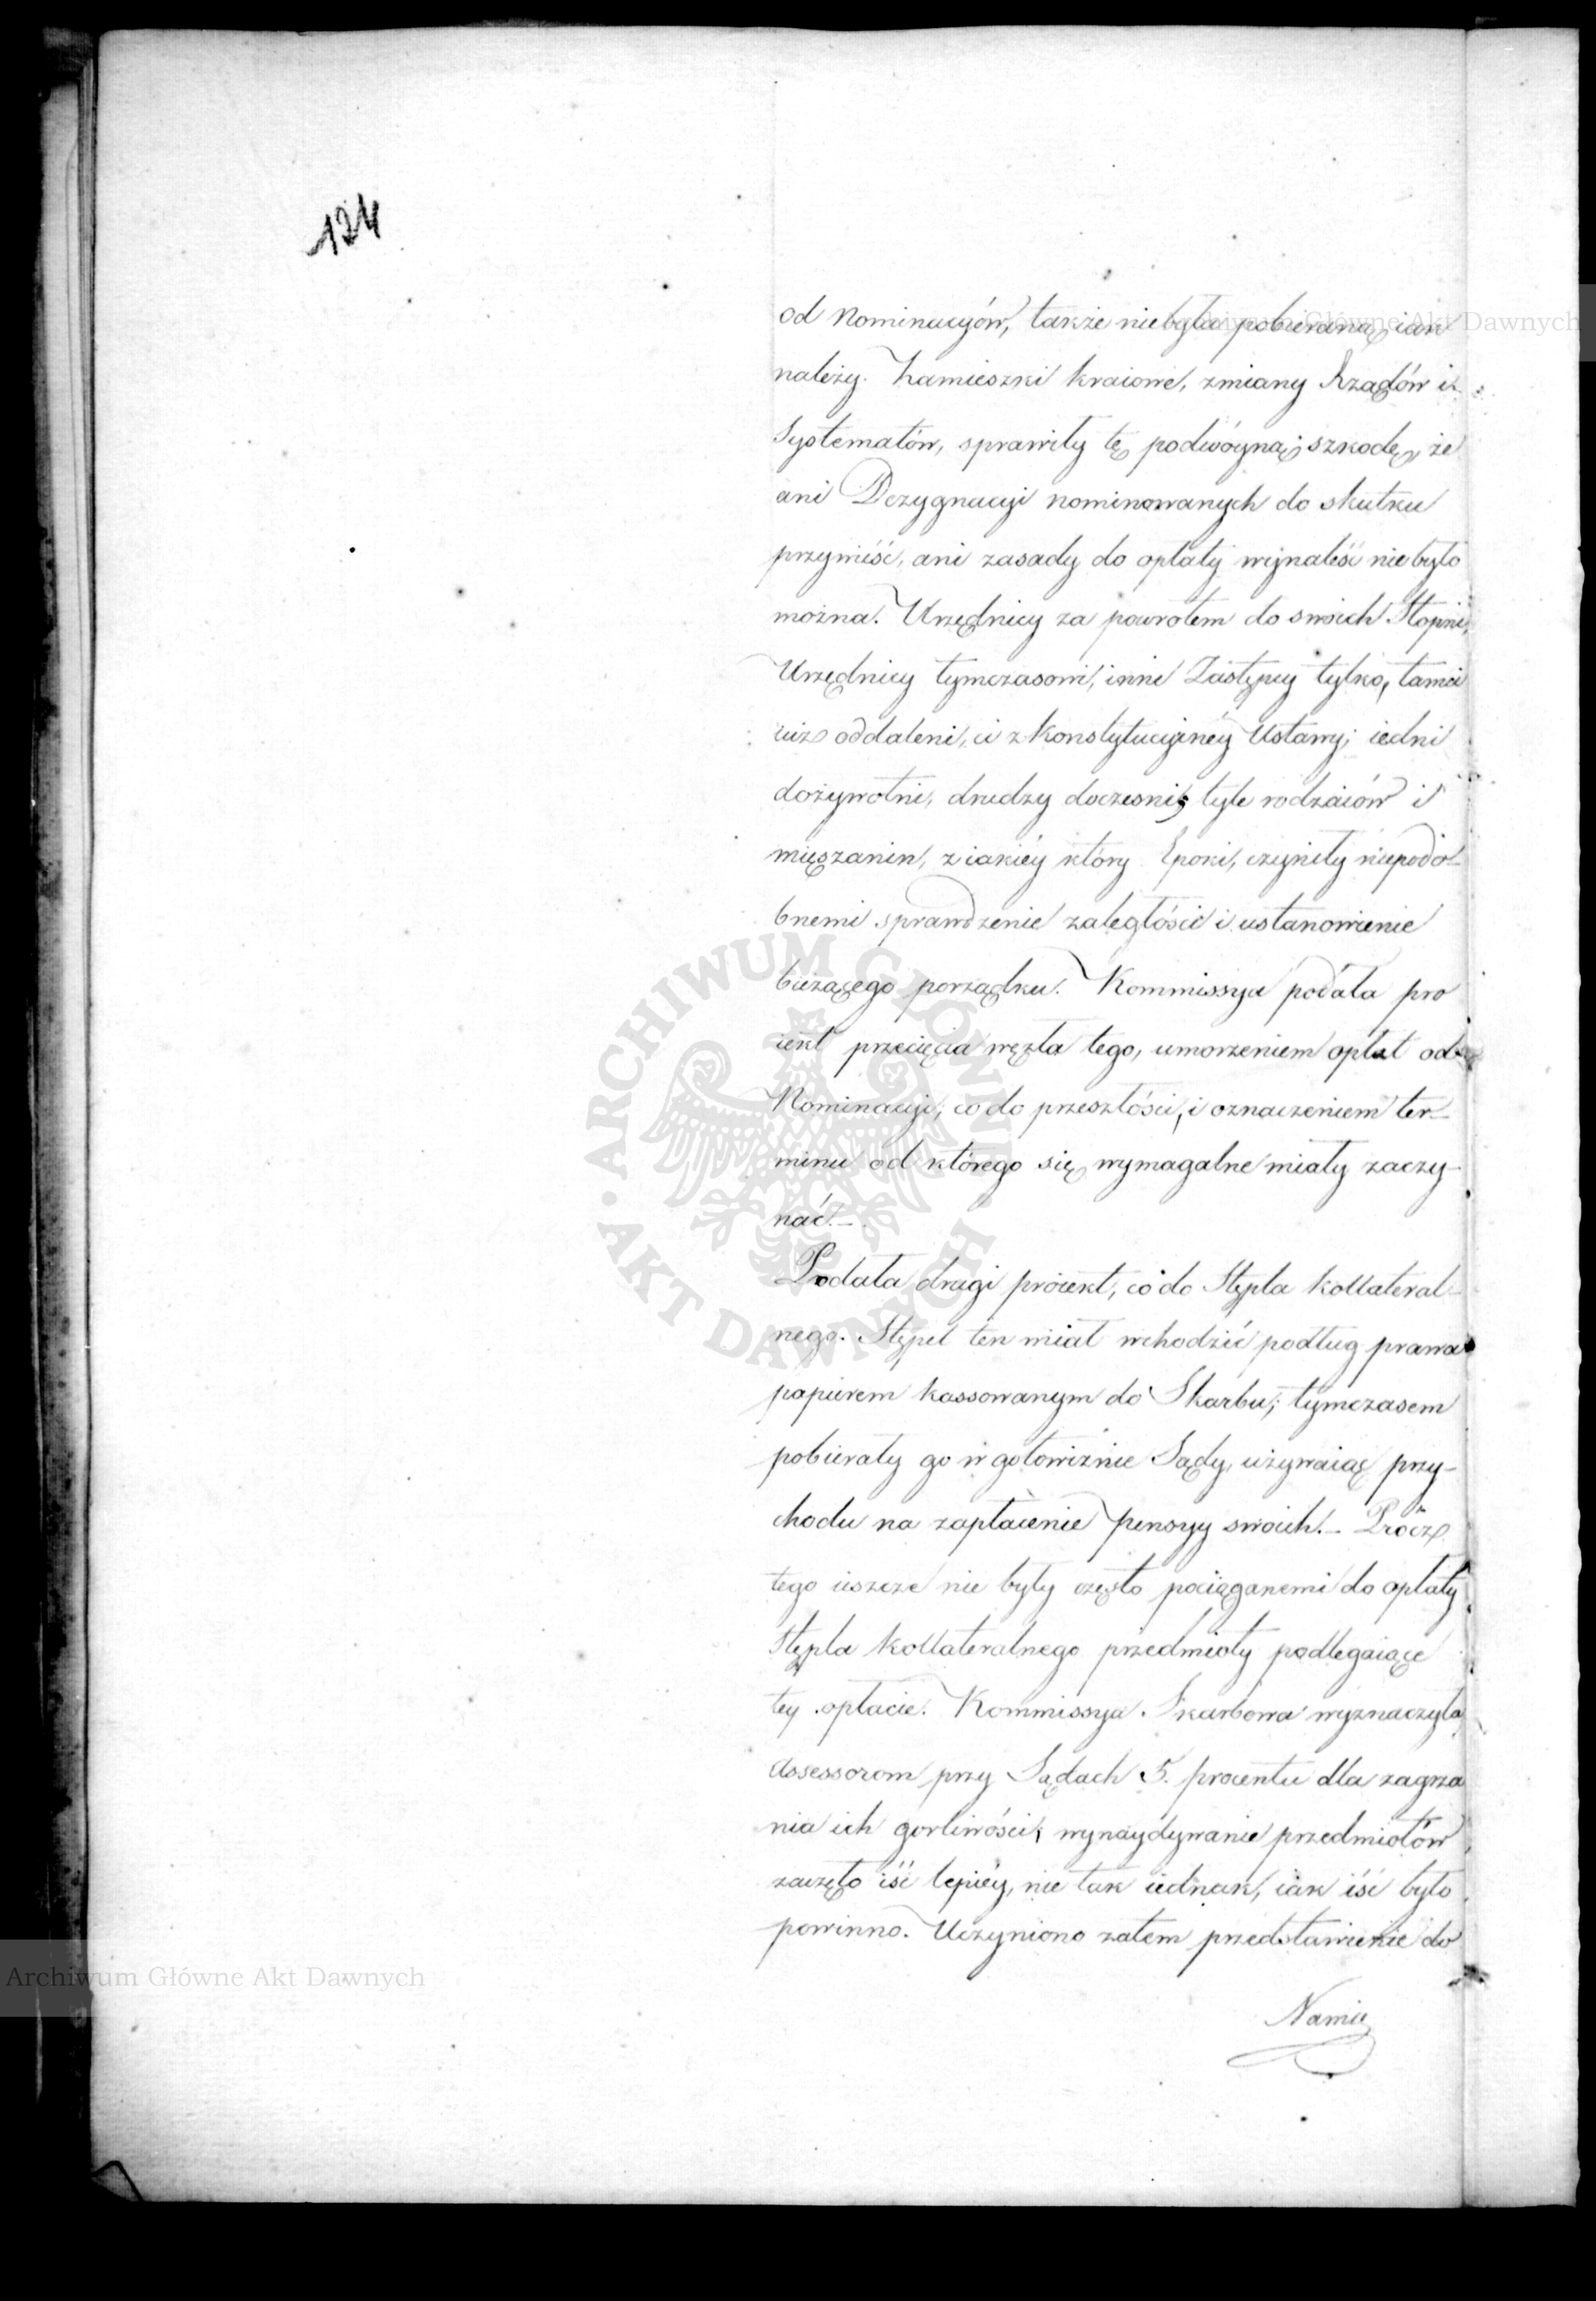 124
od Nominacyów, także niebyła pobieraną iak
należy. Zamieszki kraiowe, zmiany Rządów i
Systematów, sprawiły tę podwóyną szkodę, że
ani Dezygnacyi nominowanych do skutku
przywieść, ani zasady do opłaty wynaleść nie było
można. Urzędnicy za powrotem do swoich Stopni,
Urzędnicy tymczasowi, inni Zastępcy tylko, tamci
iuż oddaleni, ci z Konstytucyinéy Ustawy; iedni
dożywotni, drudzy docześni; tyle rodzaiów i
mięszanin, z iakiéy który Epoki, czyniły niepodo-
bnemi sprawdzenie zaległości i ustanowienie
bieżącego porządku. Kommissya podała pro
iekt przecięcia węzła tego, umorzeniem opłat od
Nominacyi, co do przeszłości, i oznaczeniem ter-
minu od którego się wymagalne miały zaczy-
nać.-
Podała drugi proiekt, co do Stępla kollateral-
nego. Stępel ten miał wchodzić podług prawa
papierem kassowanym do Skarbu; tymczasem
pobierały go w gotowiznie Sądy, używaiąc przy-
chodu na zapłacenie pensyy swoich.- Prócz
tego ieszcze nie były często pociąganemi do opłaty
Stępla kollateralnego przedmioty podlegaiące
tey opłacie. Kommissya Skarbowa wyznaczyła
Assessorom przy Sądach 5. procentu dla zagrza
nia ich gorliwości, wynaydywanie przedmiotów
zaczęło iść lepiéy, nie tak iednak, iak iść było
powinno. Uczyniono zatem przedstawienie do
Namie
Archiwum Główne Akt Dawnych
Archiwum Główne Akt Dawnych
ARCHIWUM GŁÓWNE · AKT DAWNYCH ·